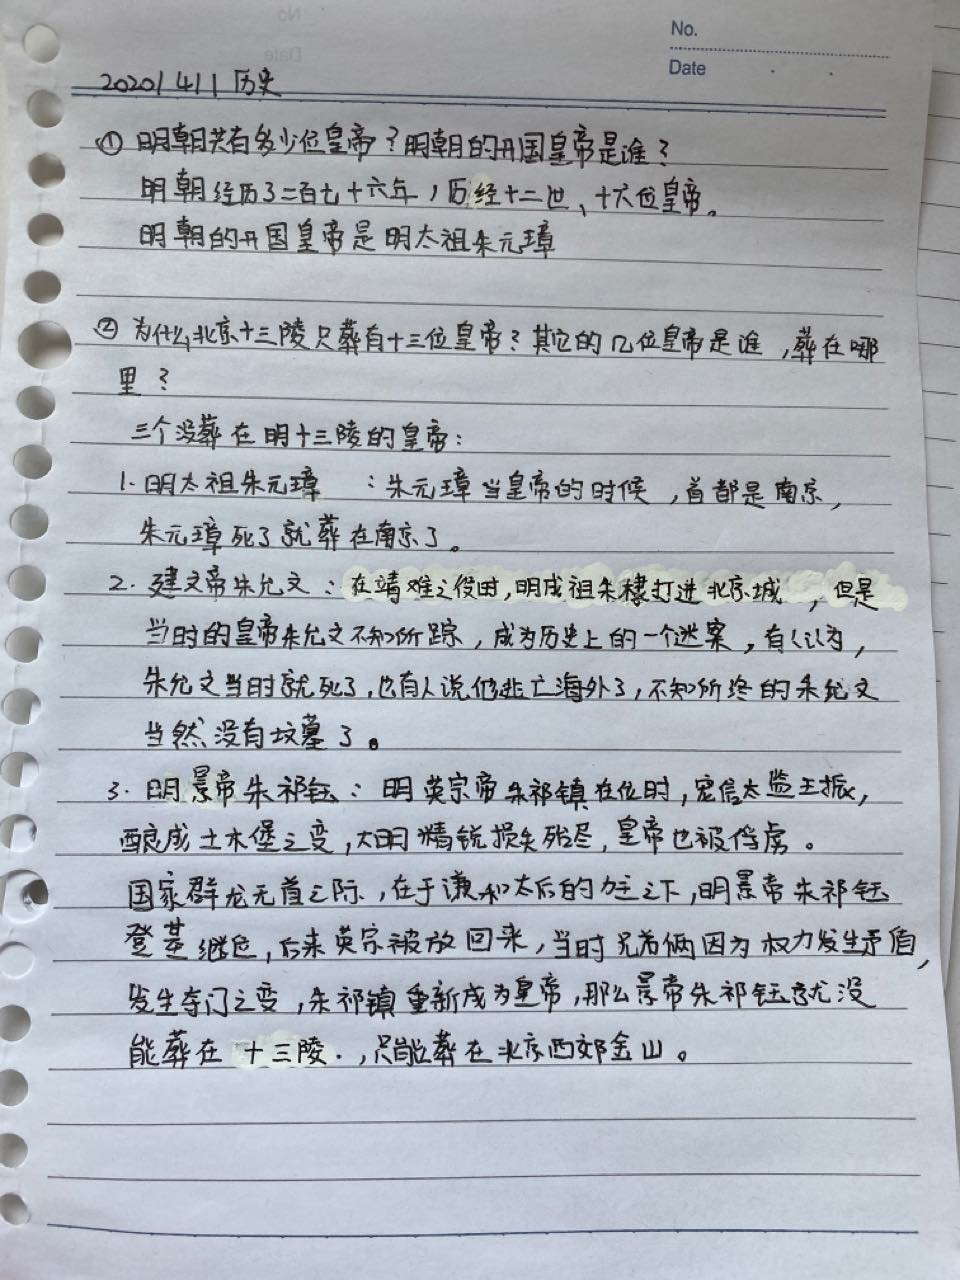 No.
Date
2020/4/1 历史
① 明朝共有多少位皇帝？明朝的开国皇帝是谁？
明朝经历了二百七十六年，历经十二世、十六位皇帝。
明朝的开国皇帝是明太祖朱元璋
② 为什么北京十三陵只葬有十三位皇帝？其它的几位皇帝是谁，葬在哪
里？
三个没葬在明十三陵的皇帝：
1. 明太祖朱元璋 ：朱元璋当皇帝的时候，首都是南京，
朱元璋死了就葬在南京了。
2. 建文帝朱允文：在靖难之役时，明成祖朱棣打进北京城，但是
当时的皇帝朱允文不知所踪，成为历史上的一个迷案，有人认为，
朱允文当时就死了，也有人说他逃亡海外了，不知所终的朱允文
当然没有坟墓了。
3. 明景帝朱祁钰：明英宗帝朱祁镇在位时，宠信太监王振，
酿成土木堡之变，大明精锐损失殆尽，皇帝也被俘虏。
国家群龙无首之际，在于谦和太后的力主之下，明景帝朱祁钰
登基继位，后来英宗被放回来，当时兄弟俩因为权力发生矛盾，
发生夺门之变，朱祁镇重新成为皇帝，那么景帝朱祁钰就没
能葬在十三陵.，只能葬在北京西郊金山。